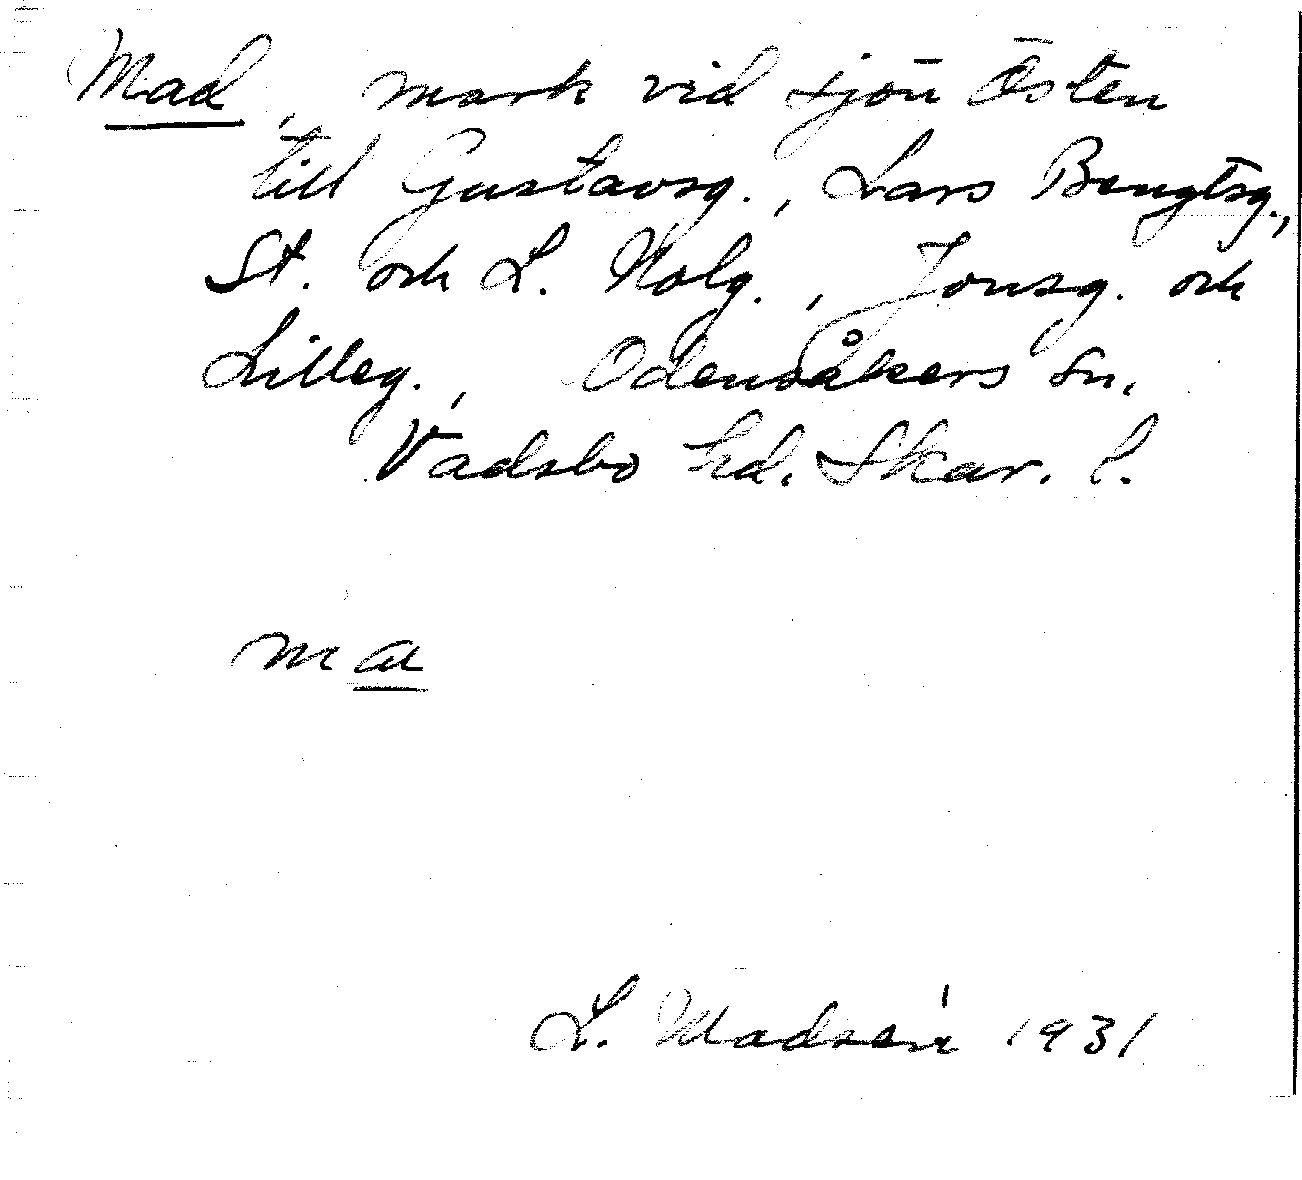 Mad, mark vid sjön Östen
till Gustavsg., Lars Bengtsg.,
St. och L. Nolg., Jonsg. och
Lilleg., Odensåkers sn.
Vadsbo hd. Skar. l.
ma
L. Madsén 1931